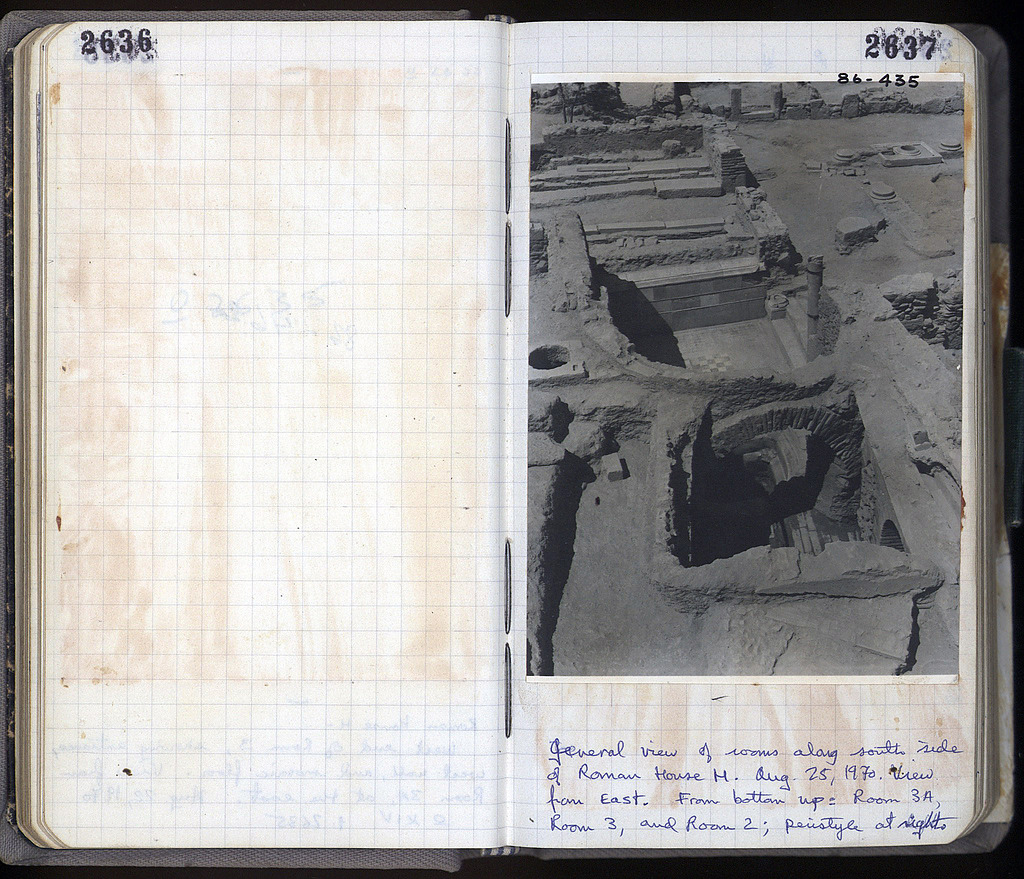 2636
2637
86-435
General view of rooms along south side
of Roman House H. Aug. 25, 1970. View
from East. From bottom up: Room 3A,
Room 3, and Room 2; peristyle at right